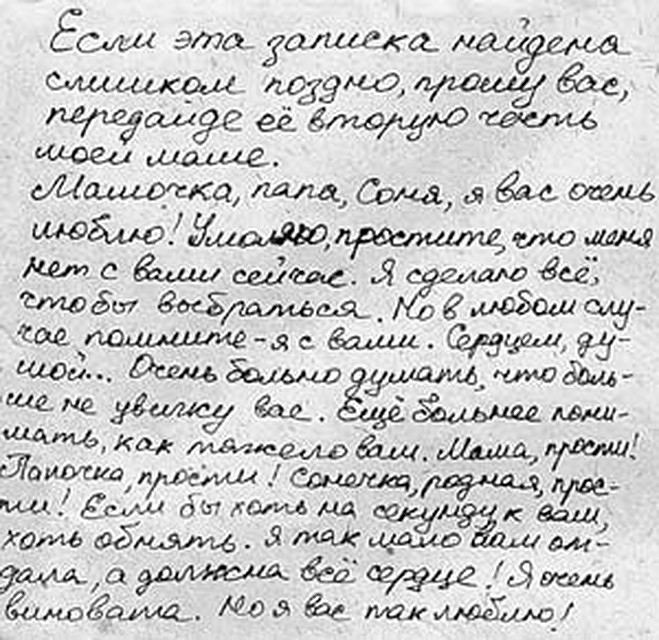 Если эта записка найдена
слишком поздно, прошу вас,
передайде её вторую часть
моей маме.
Мамочка, папа, Соня, я вас очень
люблю! Умоляю, простите, что меня
нет с вами сейчас. Я сделаю всё,
чтобы выбраться. Но в любом слу-
чае помните - я с вами. Сердцем, ду-
шой... Очень больно думать, что боль-
ше не увижу вас. Ещё больнее пони-
мать, как тяжело вам. Мама, прости!
Папочка, прости! Сонечка, родная, прос-
ти! Если бы хоть на секунду к вам,
хоть обнять. Я так мало вам от-
дала, а должна всё сердце! Я очень
виновата. Но я вас так люблю!